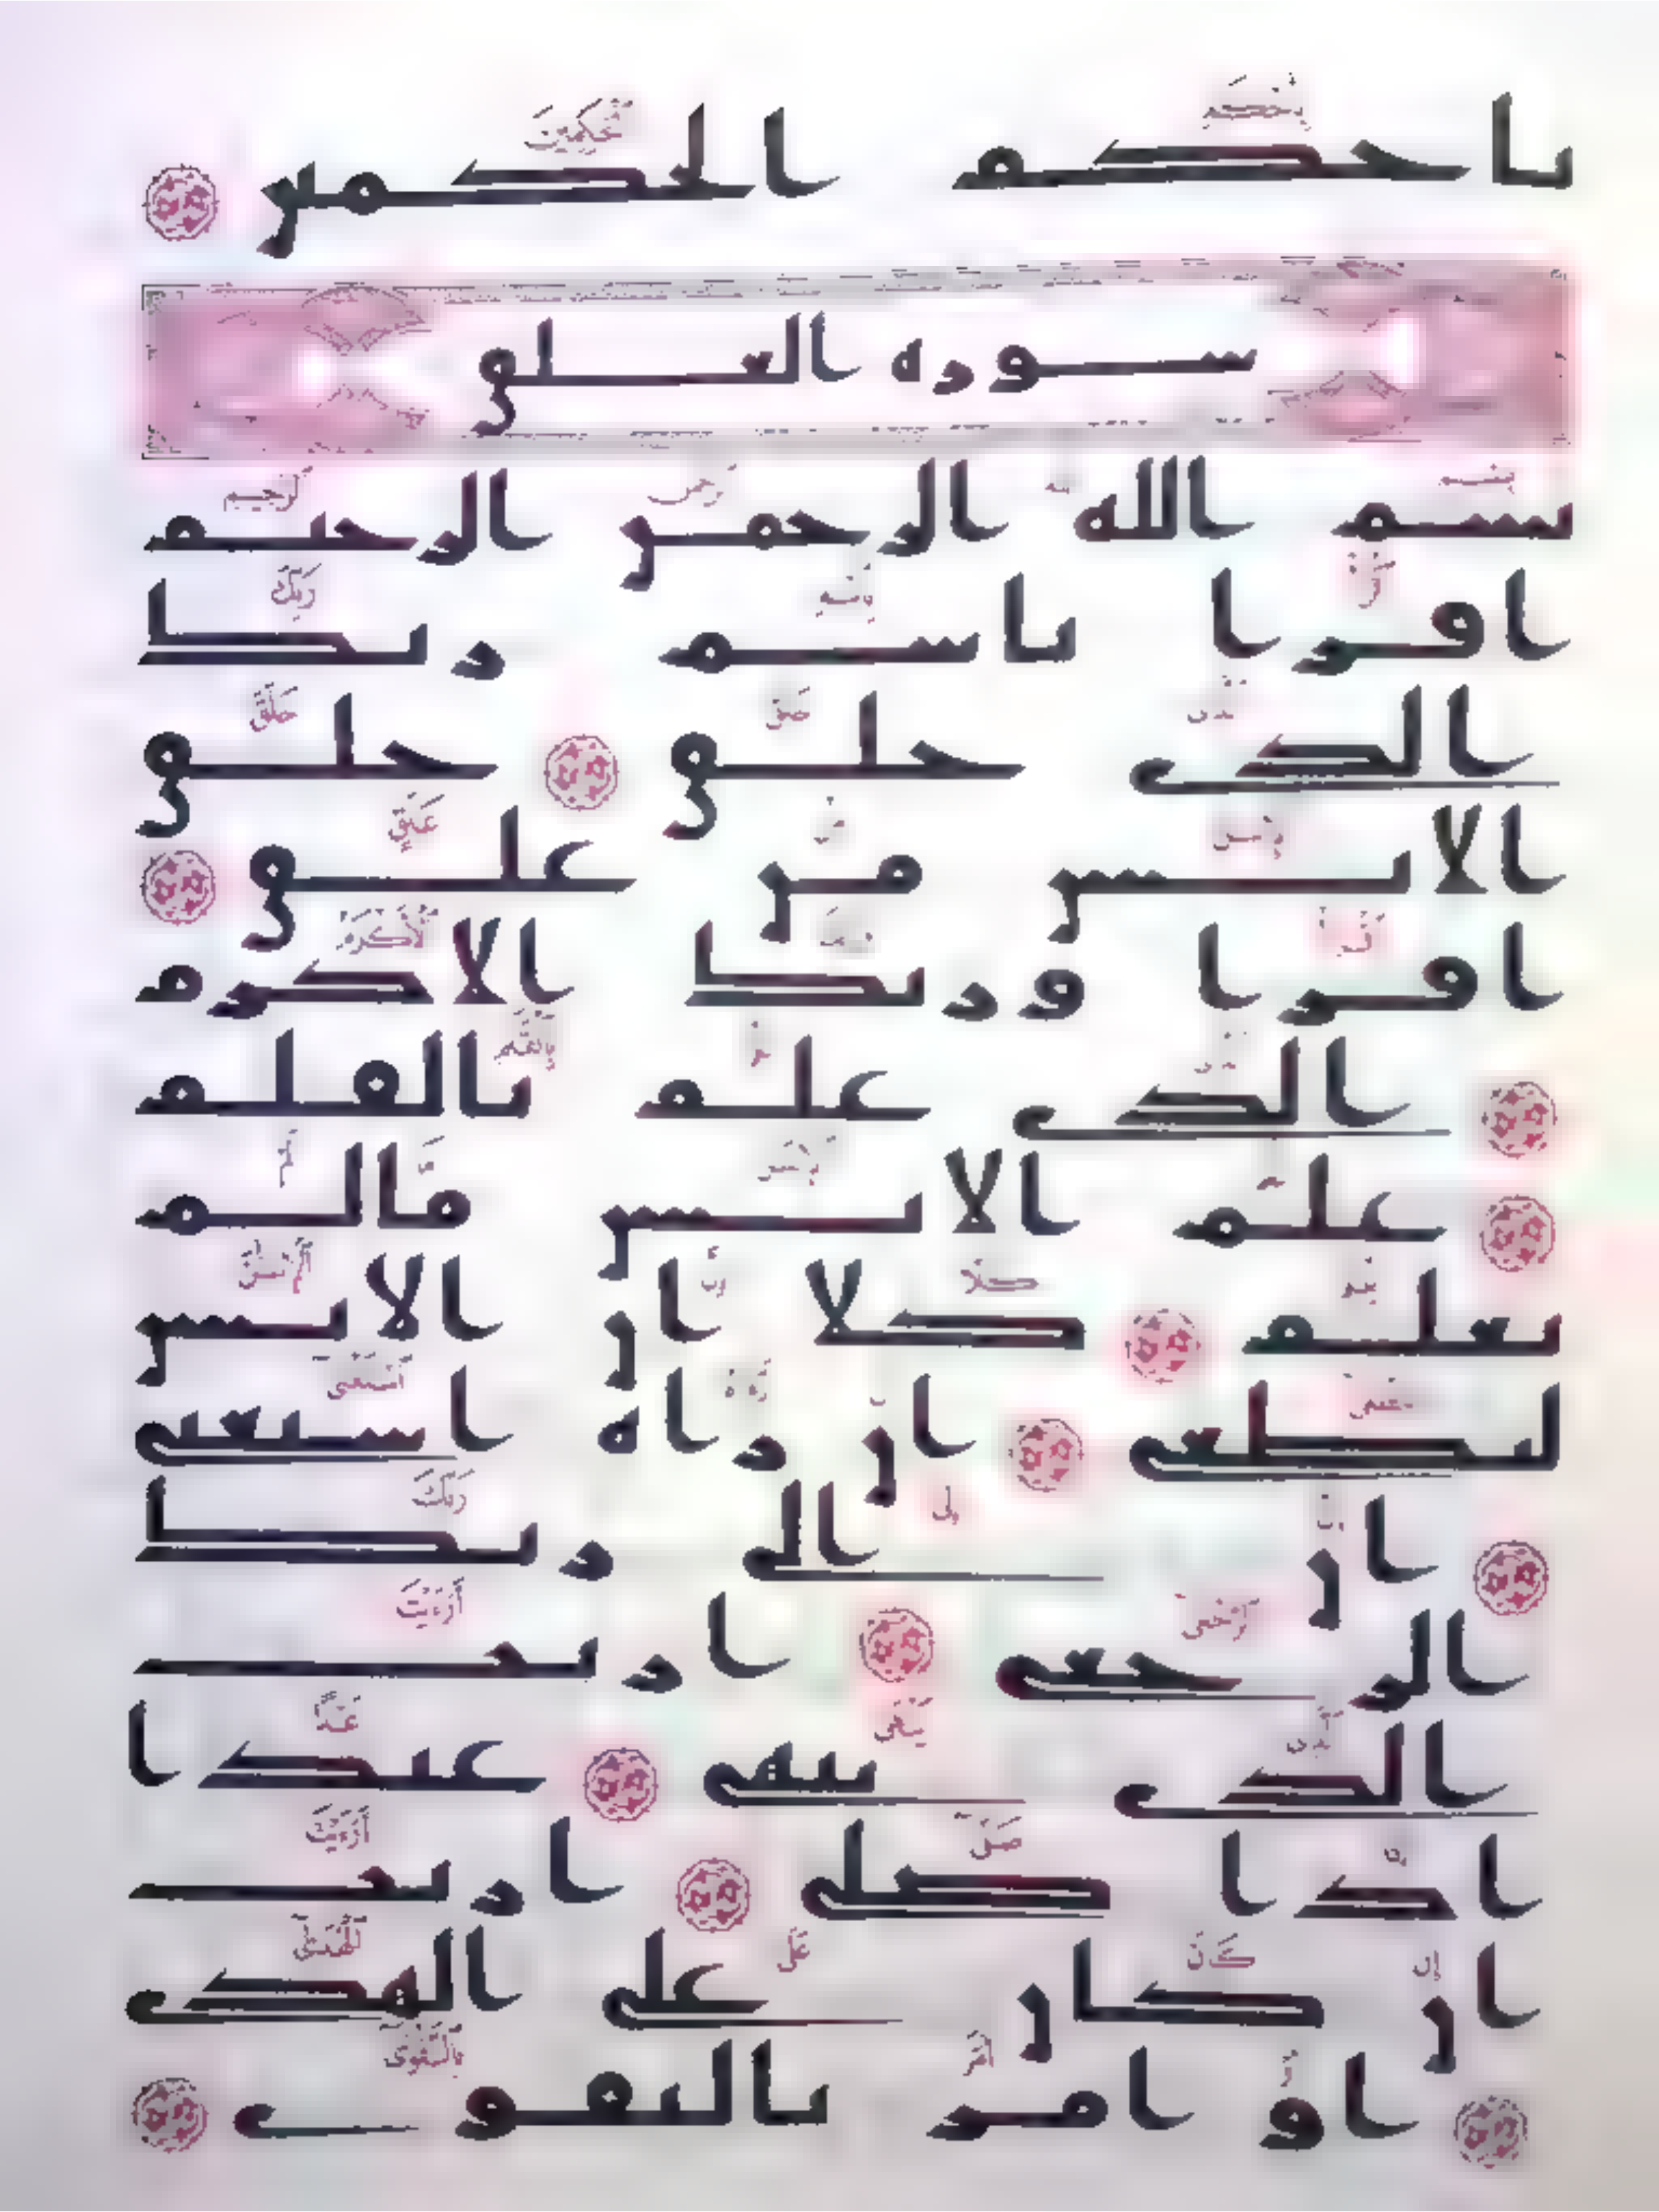 باحكم الحكمين
سورة العلق
بسم الله الرحمن الرحيم
اقرا باسم ربك
الذي خلق خلق
الانسن من علق
اقرا وربك الاكرم
الذي علم بالقلم
علم الانسن ما لم
يعلم كلا ان الانسن
ليطغى ان راه استغنى
ان الى ربك
الرجعى اريت
الذي ينهى عبدا
اذا صلى اريت
ان كان على الهدى
او امر بالتقوى